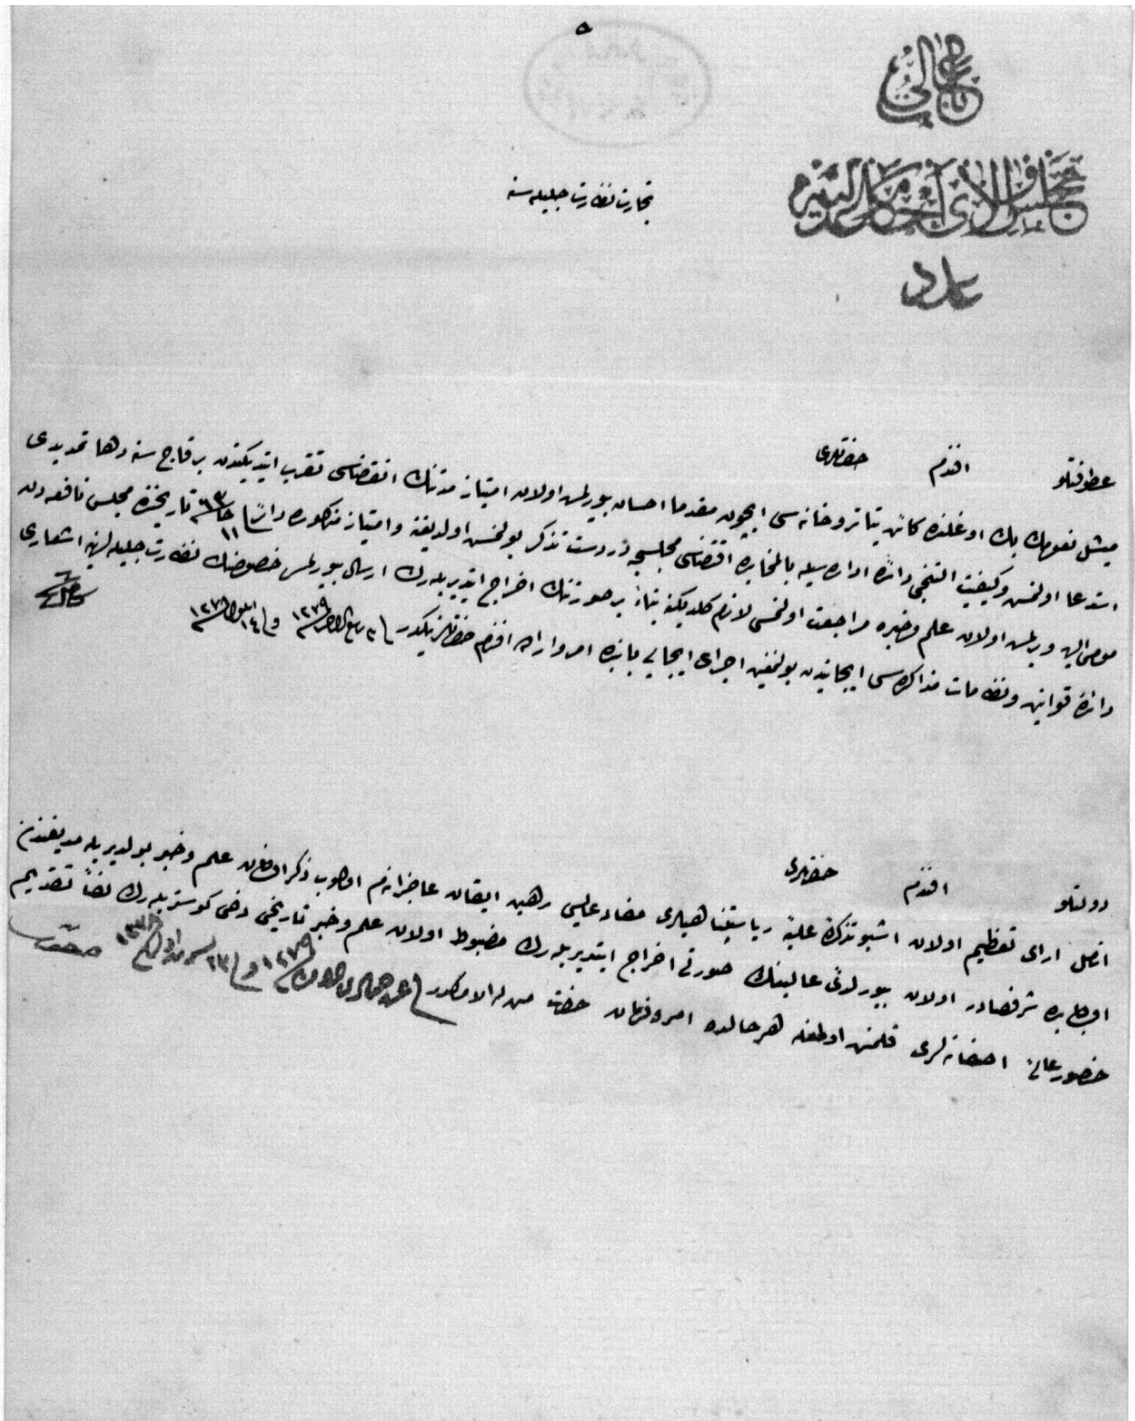 باب عالی
مجلس والای احکام عدلیه
عدد
تجارت نظارت جلیله سنه
عطوفتلو افندم حضرتلری
میشل نعوم بك بك اوغلنده کائن تیاتروخانه سی ایچون مقدما احسان بیورلمش اولان امتیاز مدتنك انقضاسی تقرب ایتدیکندن بر قاچ سنه دها تمدیدی
استدعا اولنمش وکیفیت التنجی دائره اداره سیله بالمخابره اقتضاسی مجلسجه دردست تذکر بولنمش اولدیغنه وامتیاز مذکوره دائر ١١ ٦٣ تاریخنده مجلس نافعه دن
مومی الیه ویرلمش اولان علم وخبره مراجعت اولنمسی لازم کلدیکنه بناءً بر صورتنك اخراج ایتدیریله رك ارسال بیورلمسی خصوصنك نظارت جلیله لرینه اشعاری
دائرهٔ قوانین ونظامات مذاکره سی ایجابندن بولنمغین اجرای ایجابی بابنده امر واراده افندم حضرتلرینکدر فی ربیع الاخر ١٢٧٩ وفی ١٤ ایلول ١٢٧٨
دولتلو افندم حضرتلری
اولان اشبو تذکرهٔ علیهٔ ریاستپناهیلری مفاد عالیسی رهین ایقان عاجزانه م اولوب ذکر اولنان علم وخبر بولدیریله مدیغندن
اولبابده شرفصادر اولان بیورلدی عالینك صورتی اخراج ایتدیریله رك مضبوط اولان علم وخبر تاریخی دخی کوستریله رك لفاً تقدیم
حضور عالی قلنمش اولمغله هر حالده امر وفرمان حضرت من له الامرکدر فی ١٢٧٩ وفی ٢٣ ١٢٧٨